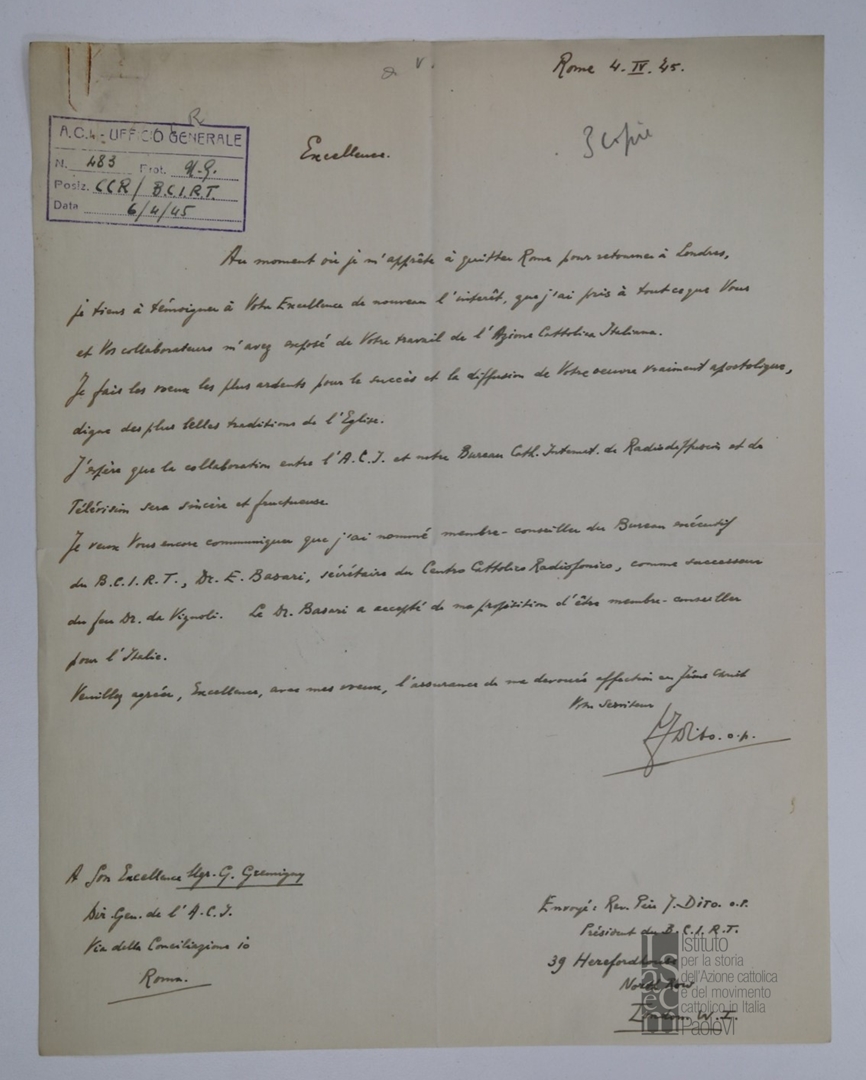 Rome 4. IV. 45.
3 copie
A.C.I. - UFFICIO GENERALE
N. 483 Prot. U.G.
Posiz. CCR / B.C.I.R.T.
Data 6/4/45
Excellence.
Au moment où je m'apprête à quitter Rome pour retourner à Londres,
je tiens à témoigner à Votre Excellence de nouveau l'intérêt, que j'ai pris à tout ce que Vous
et Vos collaborateurs m'avez exposé de Votre travail de l'Azione Cattolica Italiana.
Je fais les voeux les plus ardents pour le succès et la diffusion de Votre oeuvre vraiment apostolique,
digne des plus belles traditions de l'Eglise.
J'espère que la collaboration entre l'A.C.I. et notre Bureau Cath. Internat. de Radiodiffusion et de
Télévision sera sincère et fructueuse
Je veux Vous encore communiquer que j'ai nommé membre-conseiller du Bureau exécutif
du B.C.I.R.T., Dr. E. Basari, sécrétaire du Centro Cattolico Radiofonico, comme successeur
du feu Dr. da Vignoli. Le Dr. Basari a accepté de ma proposition d'être membre-conseiller
pour l'Italie.
Veuillez agréer, Excellence, avec mes voeux, l'assurance de ma devouée affection en Jésus Christ
Votre serviteur
J Dito. o.p.
A Son Excellence Mgr. G. Gremigny
Dir. Gen. de l'A.C.I.
Via della Conciliazione 10
Roma.
Envoyé: Rev. Père J. Dito o.p.
Président du B.C.I.R.T.
39 Hereford
North Row
London W.1.
Istituto
per la storia
dell'Azione cattolica
e del movimento
cattolico in Italia
Paolo VI